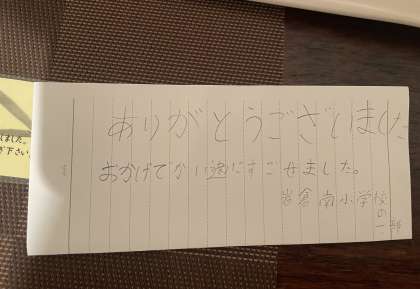 ありがとうございました
おかげでかい適にすごせました。
岩倉南小学校の一部
ました。
下さい。